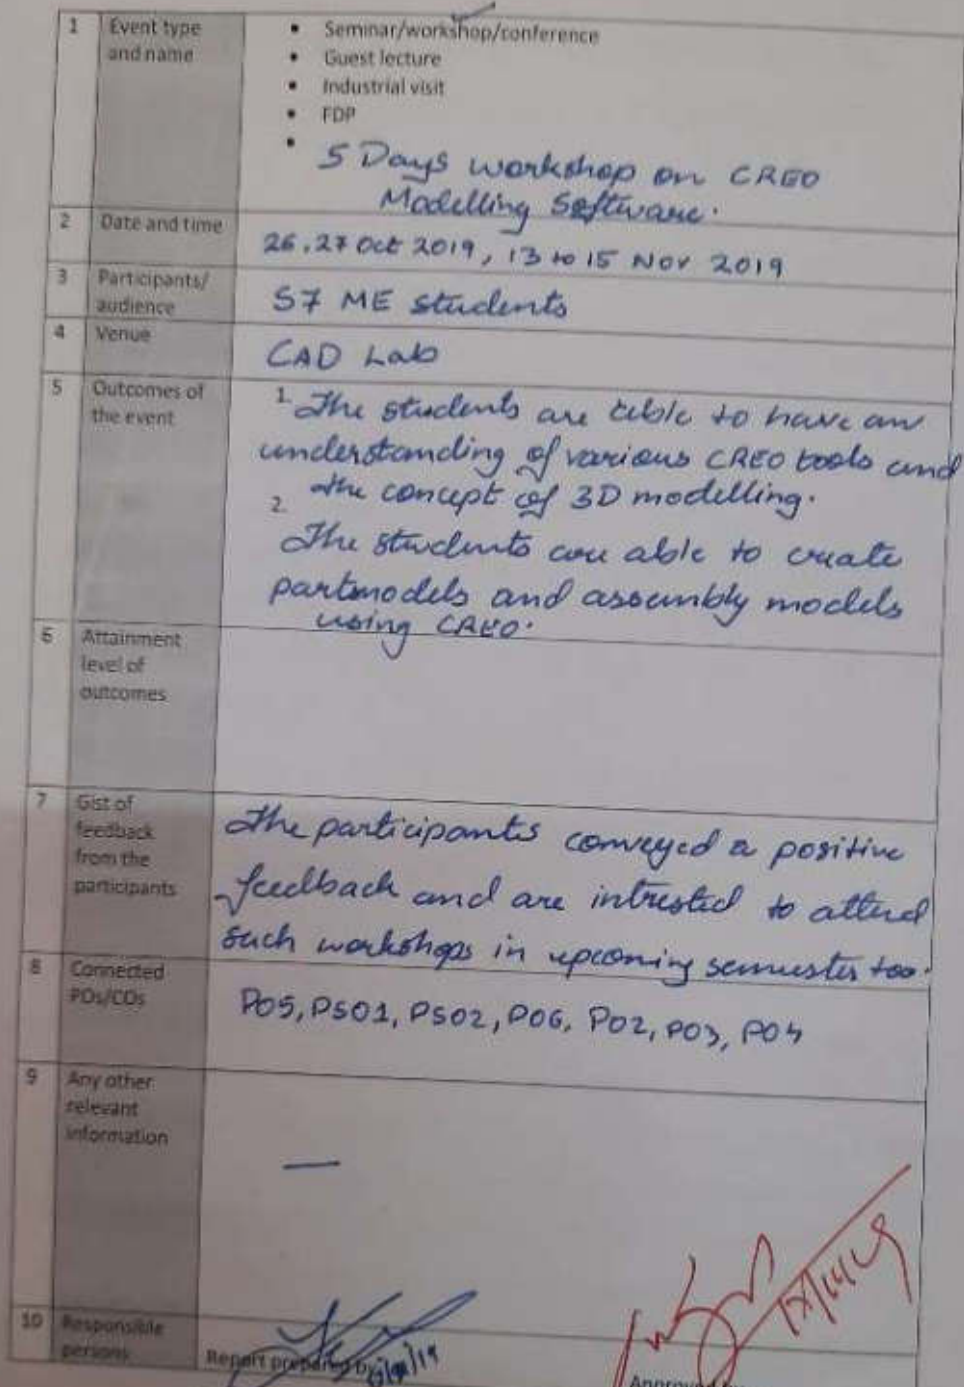 1 Event type and name
• Seminar/workshop/conference
• Guest lecture
• Industrial visit
• FDP
• 5 Days workshop on CREO
Modelling Software.
2 Date and time
26, 27 Oct 2019, 13 to 15 Nov 2019
3 Participants/
audience
S7 ME students
4 Venue
CAD Lab
5 Outcomes of
the event
1. The students are able to have an
understanding of various CREO tools and
the concept of 3D modelling.
2.
The students are able to create
partmodels and assembly models
using CREO.
6 Attainment
level of
outcomes
7 Gist of
feedback
from the
participants
The participants conveyed a positive
feedback and are intrested to attend
such workshops in upcoming semester too.
8 Connected
POs/COs
PO5, PSO1, PSO2, PO6, PO2, PO3, PO4
9 Any other
relevant
information
—
10 Responsible
persons
Report prepared by
Approved